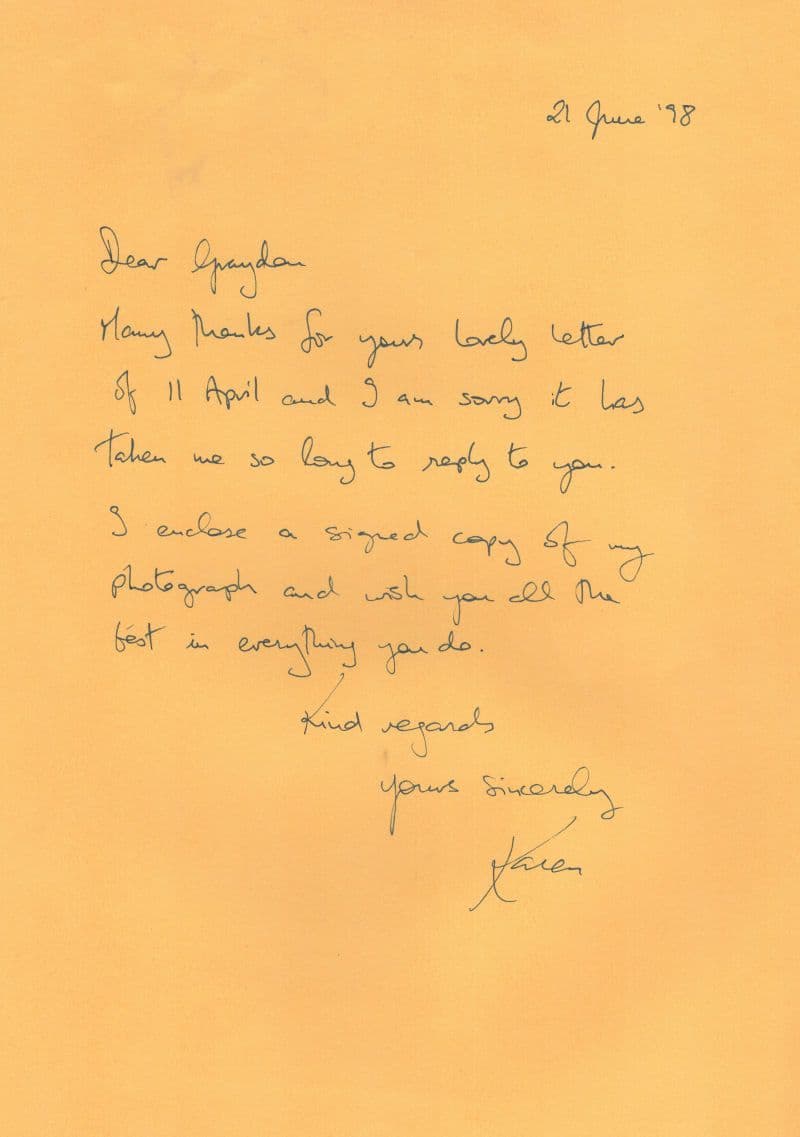 21 June '98
Dear Graydon
Many thanks for yours lovely letter
of 11 April and I am sorry it has
taken me so long to reply to you.
I enclose a signed copy of my
photograph and wish you all the
best in everything you do.
Kind regards
yours sincerely
Karen